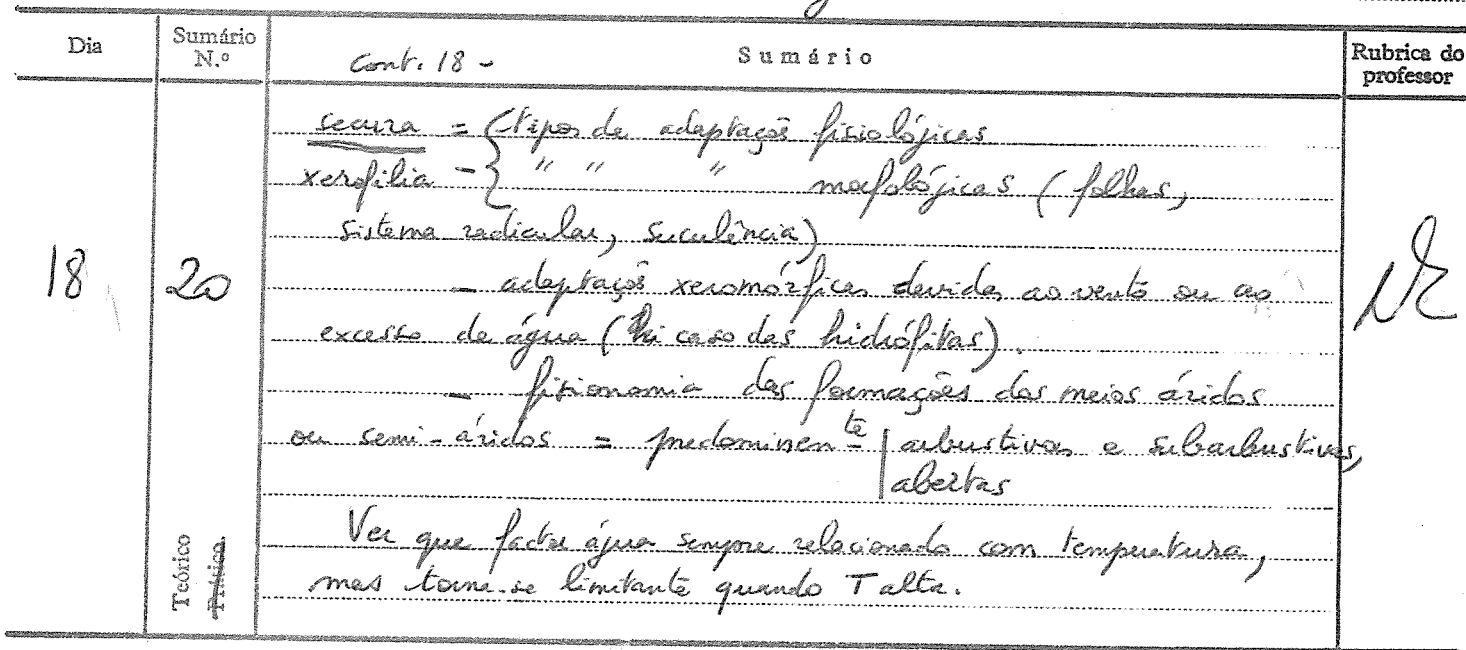 Dia
Sumário
N.º
Cont. 18 -
Sumário
Rubrica do
professor
secura = (tipos de adaptações fisiológicas
xerofilia - { " " " morfológicas (folhas,
sistema radicular, suculência)
18
20
- adaptações xeromórficas devidas ao vento ou ao
excesso de água ( caso das hidrófitas).
- fisionomia das formações dos meios áridos
ou semi-áridos = predominente | arbustivas e subarbustivas,
abertas
Ver que factor água sempre relacionado com temperatura,
mas torna-se limitante quando T alta.
Teórico
Prático